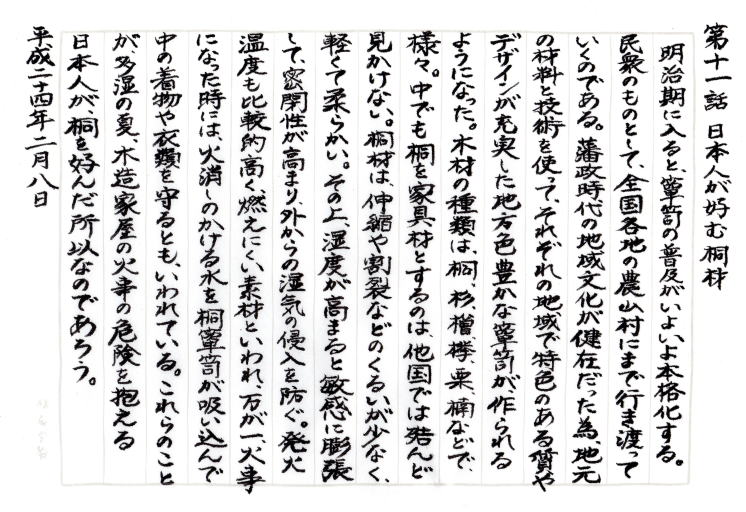 第十一話 日本人が好む桐材
明治期に入ると、簞笥の普及がいよいよ本格化する。
民衆のものとして、全国各地の農山村にまで行き渡って
いくのである。藩政時代の地域文化が健在だった為、地元
の材料と技術を使って、それぞれの地域で特色のある質や
デザインが充実した地方色豊かな簞笥が作られる
ようになった。木材の種類は、桐、杉、檜、欅、栗、楠などで、
様々。中でも桐を家具材とするのは、他国では殆んど
見かけない。桐材は、伸縮や割裂などのくるいが少なく、
軽くて柔らかい。その上、湿度が高まると敏感に膨張
して、密閉性が高まり、外からの湿気の侵入を防ぐ。発火
温度も比較的高く、燃えにくい素材といわれ、万が一、火事
になった時には、火消しのかける水を桐簞笥が吸い込んで
中の着物や衣類を守るとも、いわれている。これらのこと
が、多湿の夏、木造家屋の火事の危険を抱える
日本人が、桐を好んだ所以なのであろう。
平成二十四年二月八日